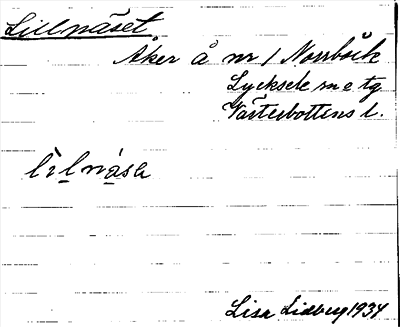 Lillnäset
Åker å nr 1 Norrbäck
Lycksele sn o tg
Västerbottens l.
lìlnásα
Lisa Lidberg 1934